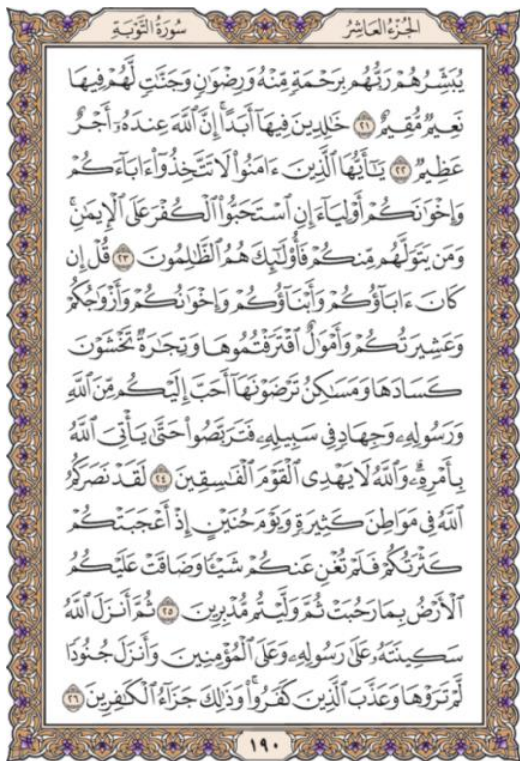 الجزء العاشر
سورة التوبة
يُبَشِّرُهُمْ رَبُّهُم بِرَحْمَةٍ مِّنْهُ وَرِضْوَٰنٍ وَجَنَّٰتٍ لَّهُمْ فِيهَا
نَعِيمٌ مُّقِيمٌ ٢١ خَٰلِدِينَ فِيهَآ أَبَدًا ۚ إِنَّ ٱللَّهَ عِندَهُۥٓ أَجْرٌ
عَظِيمٌ ٢٢ يَٰٓأَيُّهَا ٱلَّذِينَ ءَامَنُوا۟ لَا تَتَّخِذُوٓا۟ ءَابَآءَكُمْ
وَإِخْوَٰنَكُمْ أَوْلِيَآءَ إِنِ ٱسْتَحَبُّوا۟ ٱلْكُفْرَ عَلَى ٱلْإِيمَٰنِ ۚ
وَمَن يَتَوَلَّهُم مِّنكُمْ فَأُو۟لَٰٓئِكَ هُمُ ٱلظَّٰلِمُونَ ٢٣ قُلْ إِن
كَانَ ءَابَآؤُكُمْ وَأَبْنَآؤُكُمْ وَإِخْوَٰنُكُمْ وَأَزْوَٰجُكُمْ
وَعَشِيرَتُكُمْ وَأَمْوَٰلٌ ٱقْتَرَفْتُمُوهَا وَتِجَٰرَةٌ تَخْشَوْنَ
كَسَادَهَا وَمَسَٰكِنُ تَرْضَوْنَهَآ أَحَبَّ إِلَيْكُم مِّنَ ٱللَّهِ
وَرَسُولِهِۦ وَجِهَادٍ فِى سَبِيلِهِۦ فَتَرَبَّصُوا۟ حَتَّىٰ يَأْتِىَ ٱللَّهُ
بِأَمْرِهِۦ ۗ وَٱللَّهُ لَا يَهْدِى ٱلْقَوْمَ ٱلْفَٰسِقِينَ ٢٤ لَقَدْ نَصَرَكُمُ
ٱللَّهُ فِى مَوَاطِنَ كَثِيرَةٍ ۙ وَيَوْمَ حُنَيْنٍ ۙ إِذْ أَعْجَبَتْكُمْ
كَثْرَتُكُمْ فَلَمْ تُغْنِ عَنكُمْ شَيْـًٔا وَضَاقَتْ عَلَيْكُمُ
ٱلْأَرْضُ بِمَا رَحُبَتْ ثُمَّ وَلَّيْتُم مُّدْبِرِينَ ٢٥ ثُمَّ أَنزَلَ ٱللَّهُ
سَكِينَتَهُۥ عَلَىٰ رَسُولِهِۦ وَعَلَى ٱلْمُؤْمِنِينَ وَأَنزَلَ جُنُودًا
لَّمْ تَرَوْهَا وَعَذَّبَ ٱلَّذِينَ كَفَرُوا۟ ۚ وَذَٰلِكَ جَزَآءُ ٱلْكَٰفِرِينَ ٢٦
١٩٠